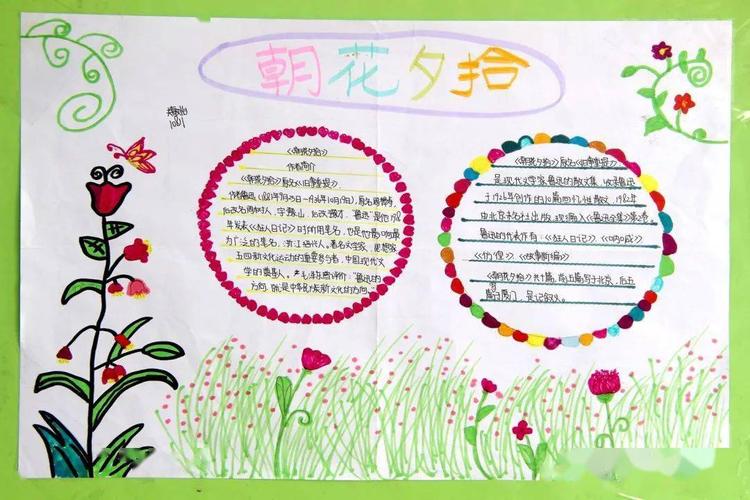 朝花夕拾
1081
《朝花夕拾》
作者简介
《朝花夕拾》原名《旧事重提》
作者鲁迅（1881年9月25日-1936年10月19日），原名周樟寿，
后改名周树人，字豫山，后改豫才，"鲁迅"是他1918
年发表《狂人日记》时所用笔名，也是他最为影响最
为广泛的笔名，浙江绍兴人。著名文学家、思想家
五四新文化运动的重要参与者，中国现代文
学的奠基人。毛泽东曾评价："鲁迅的
方向，就是中华民族新文化的方向。"
《朝花夕拾》原名《旧事重提》
是现代文学家鲁迅的散文集，收录鲁迅
于1926年创作的10篇回忆性散文，1928年
由北京未名社出版，现编入《鲁迅全集》第2卷。
鲁迅的代表作有：《狂人日记》、《呐喊》
《彷徨》、《故事新编》
《朝花夕拾》共十篇，前五篇写于北京，后五
篇写于厦门，是记叙文。